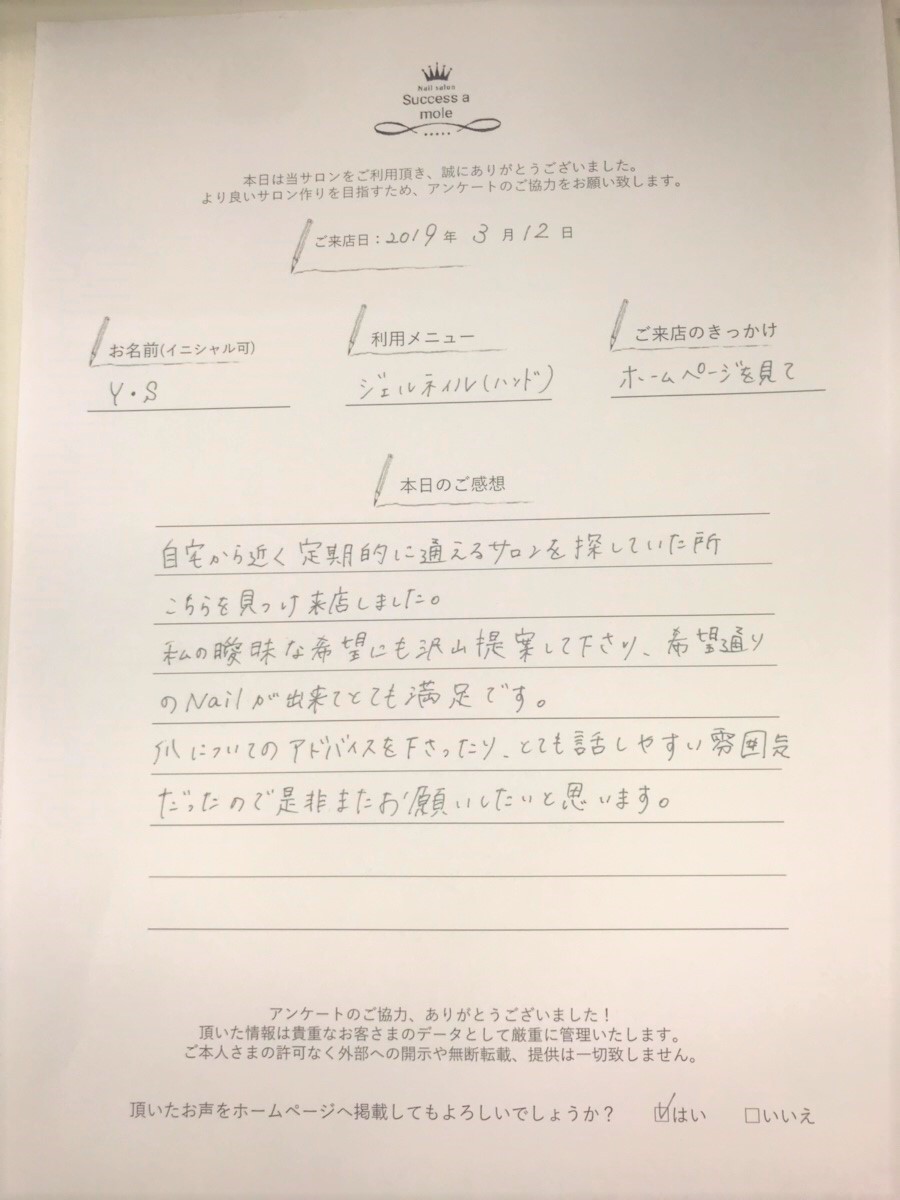 Nail salon
Success a
mole
本日は当サロンをご利用頂き、誠にありがとうございました。
より良いサロン作りを目指すため、アンケートのご協力をお願い致します。
ご来店日：2019年 3月12日
お名前(イニシャル可)
Y・S
利用メニュー
ジェルネイル(ハンド)
ご来店のきっかけ
ホームページを見て
本日のご感想
自宅から近く定期的に通えるサロンを探していた所
こちらを見つけ来店しました。
私の曖昧な希望にも沢山提案して下さり、希望通り
のNailが出来てとても満足です。
爪についてのアドバイスを下さったり、とても話しやすい雰囲気
だったので是非またお願いしたいと思います。
アンケートのご協力、ありがとうございました！
頂いた情報は貴重なお客さまのデータとして厳重に管理いたします。
ご本人さまの許可なく外部への開示や無断転載、提供は一切致しません。
頂いたお声をホームページへ掲載してもよろしいでしょうか？ ☑はい □いいえ